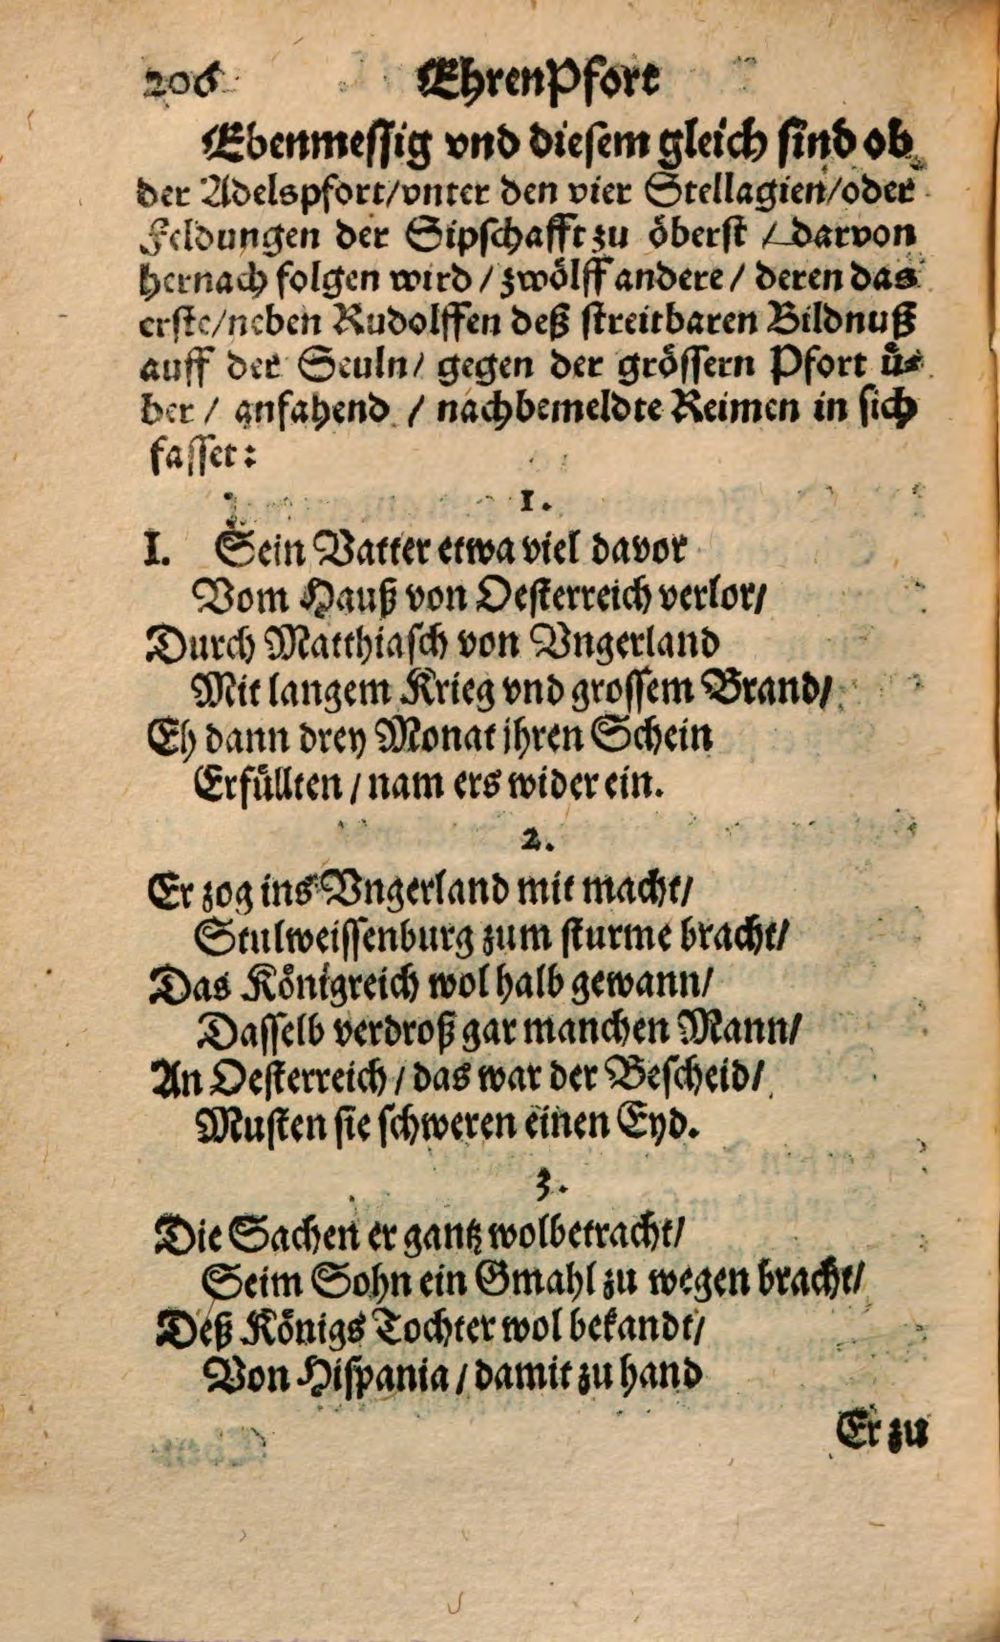 206 EhrenPfort
Ebenmessig vnd diesem gleich sind ob
der Adelspfort/vnter den vier Stellagien/oder
Feldungen der Sipschafft zu öberst / darvon
hernach folgen wird / zwölff andere / deren das
erste/neben Rudolffen deß streitbaren Bildnuß
auff der Seuln/ gegen der grössern Pfort ü-
ber / anfahend / nachbemeldte Reimen in sich
fasset:
1.
I. Sein Vatter etwa viel davor
Vom Hauß von Oesterreich verlor/
Durch Matthiasch von Vngerland
Mit langem Krieg vnd grossem Brand/
Eh dann drey Monat ihren Schein
Erfüllten / nam ers wider ein.
2.
Er zog ins Vngerland mit macht/
Stulweissenburg zum sturme bracht/
Das Königreich wol halb gewann/
Dasselb verdroß gar manchen Mann/
An Oesterreich / das war der Bescheid/
Musten sie schweren einen Eyd.
3.
Die Sachen er gantz wolbetracht/
Seim Sohn ein Gmahl zu wegen bracht/
Deß Königs Tochter wol bekandt/
Von Hispania / damit zu hand
Er zu